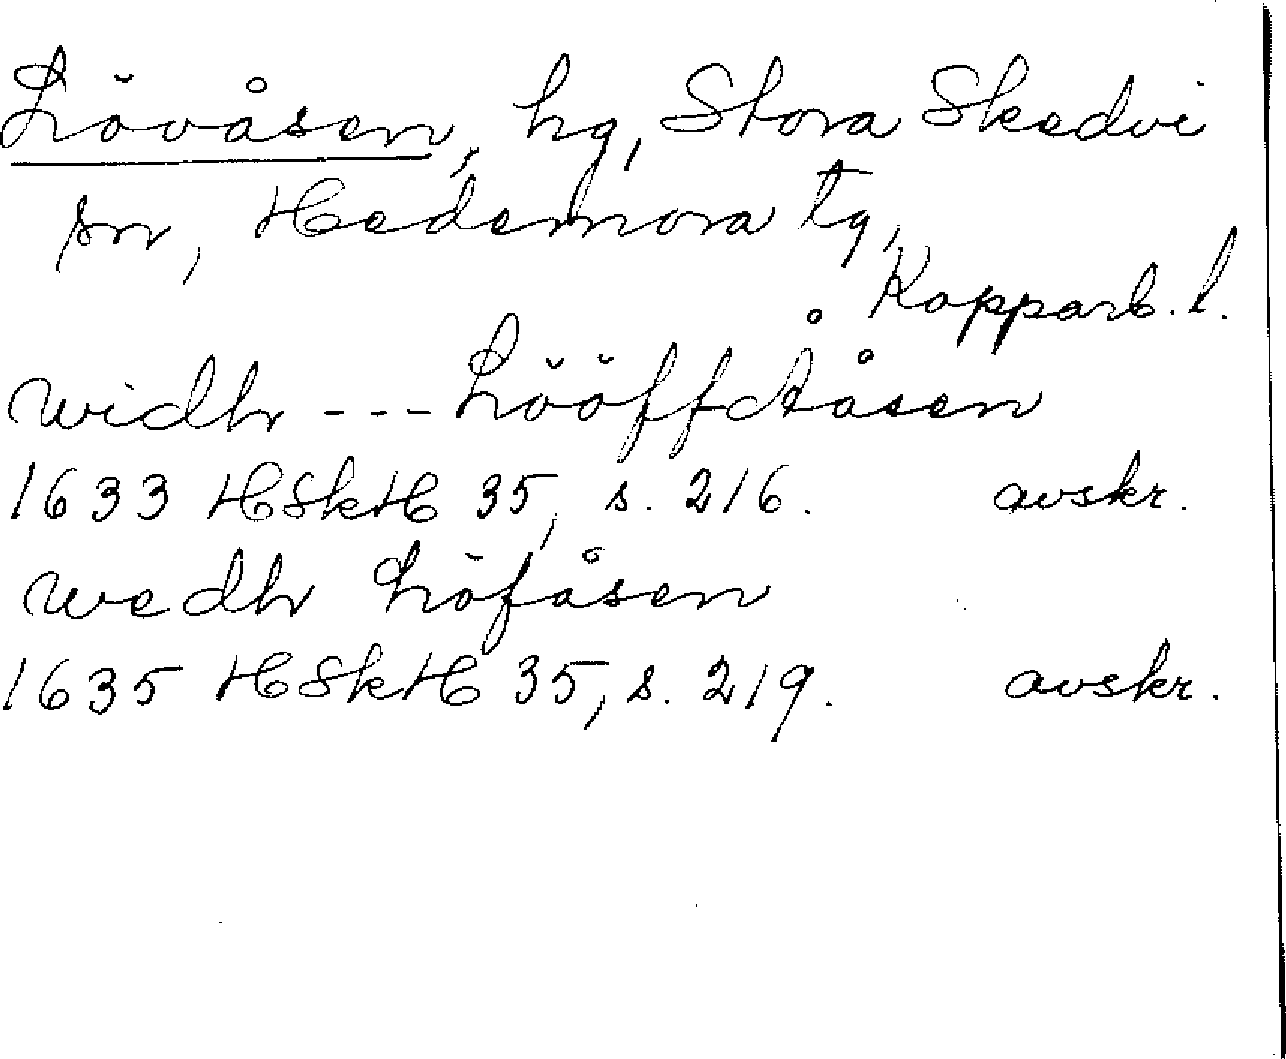 Lövåsen, hg, Stora Skedvi
sn, Hedemora tg,
Kopparb. l.
widh --- LööffÅåsen
1633 HSkH 35, s. 216. avskr.
wedh Löfåsen
1635 HSkH 35, s. 219. avskr.